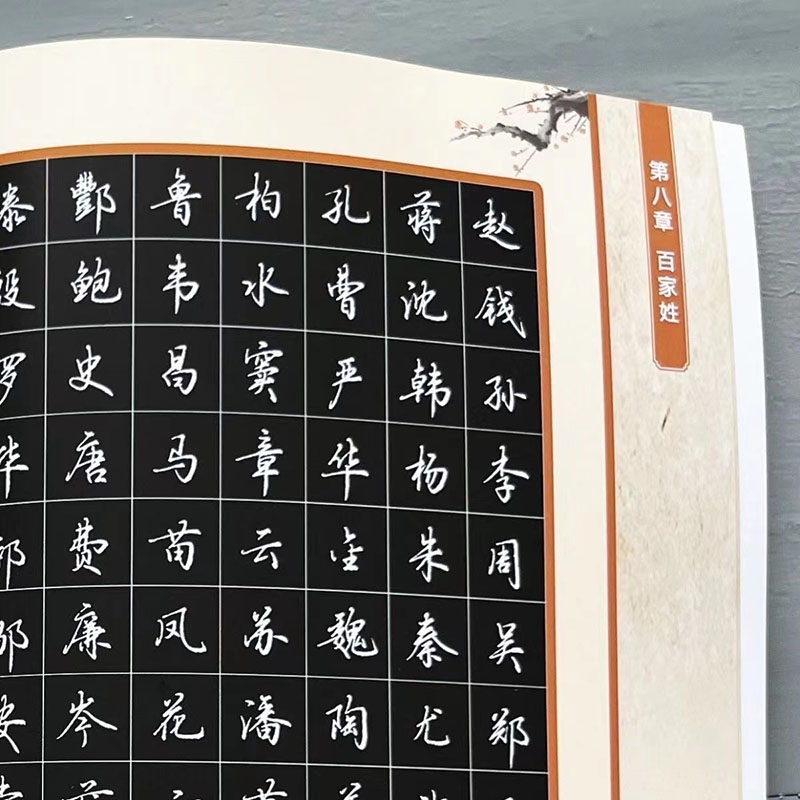 第八章 百家姓
赵钱孙李周吴郑
蒋沈韩杨朱秦尤
孔曹严华金魏陶
柏水窦章云苏潘
鲁韦昌马苗凤花
酆鲍史唐费廉岑